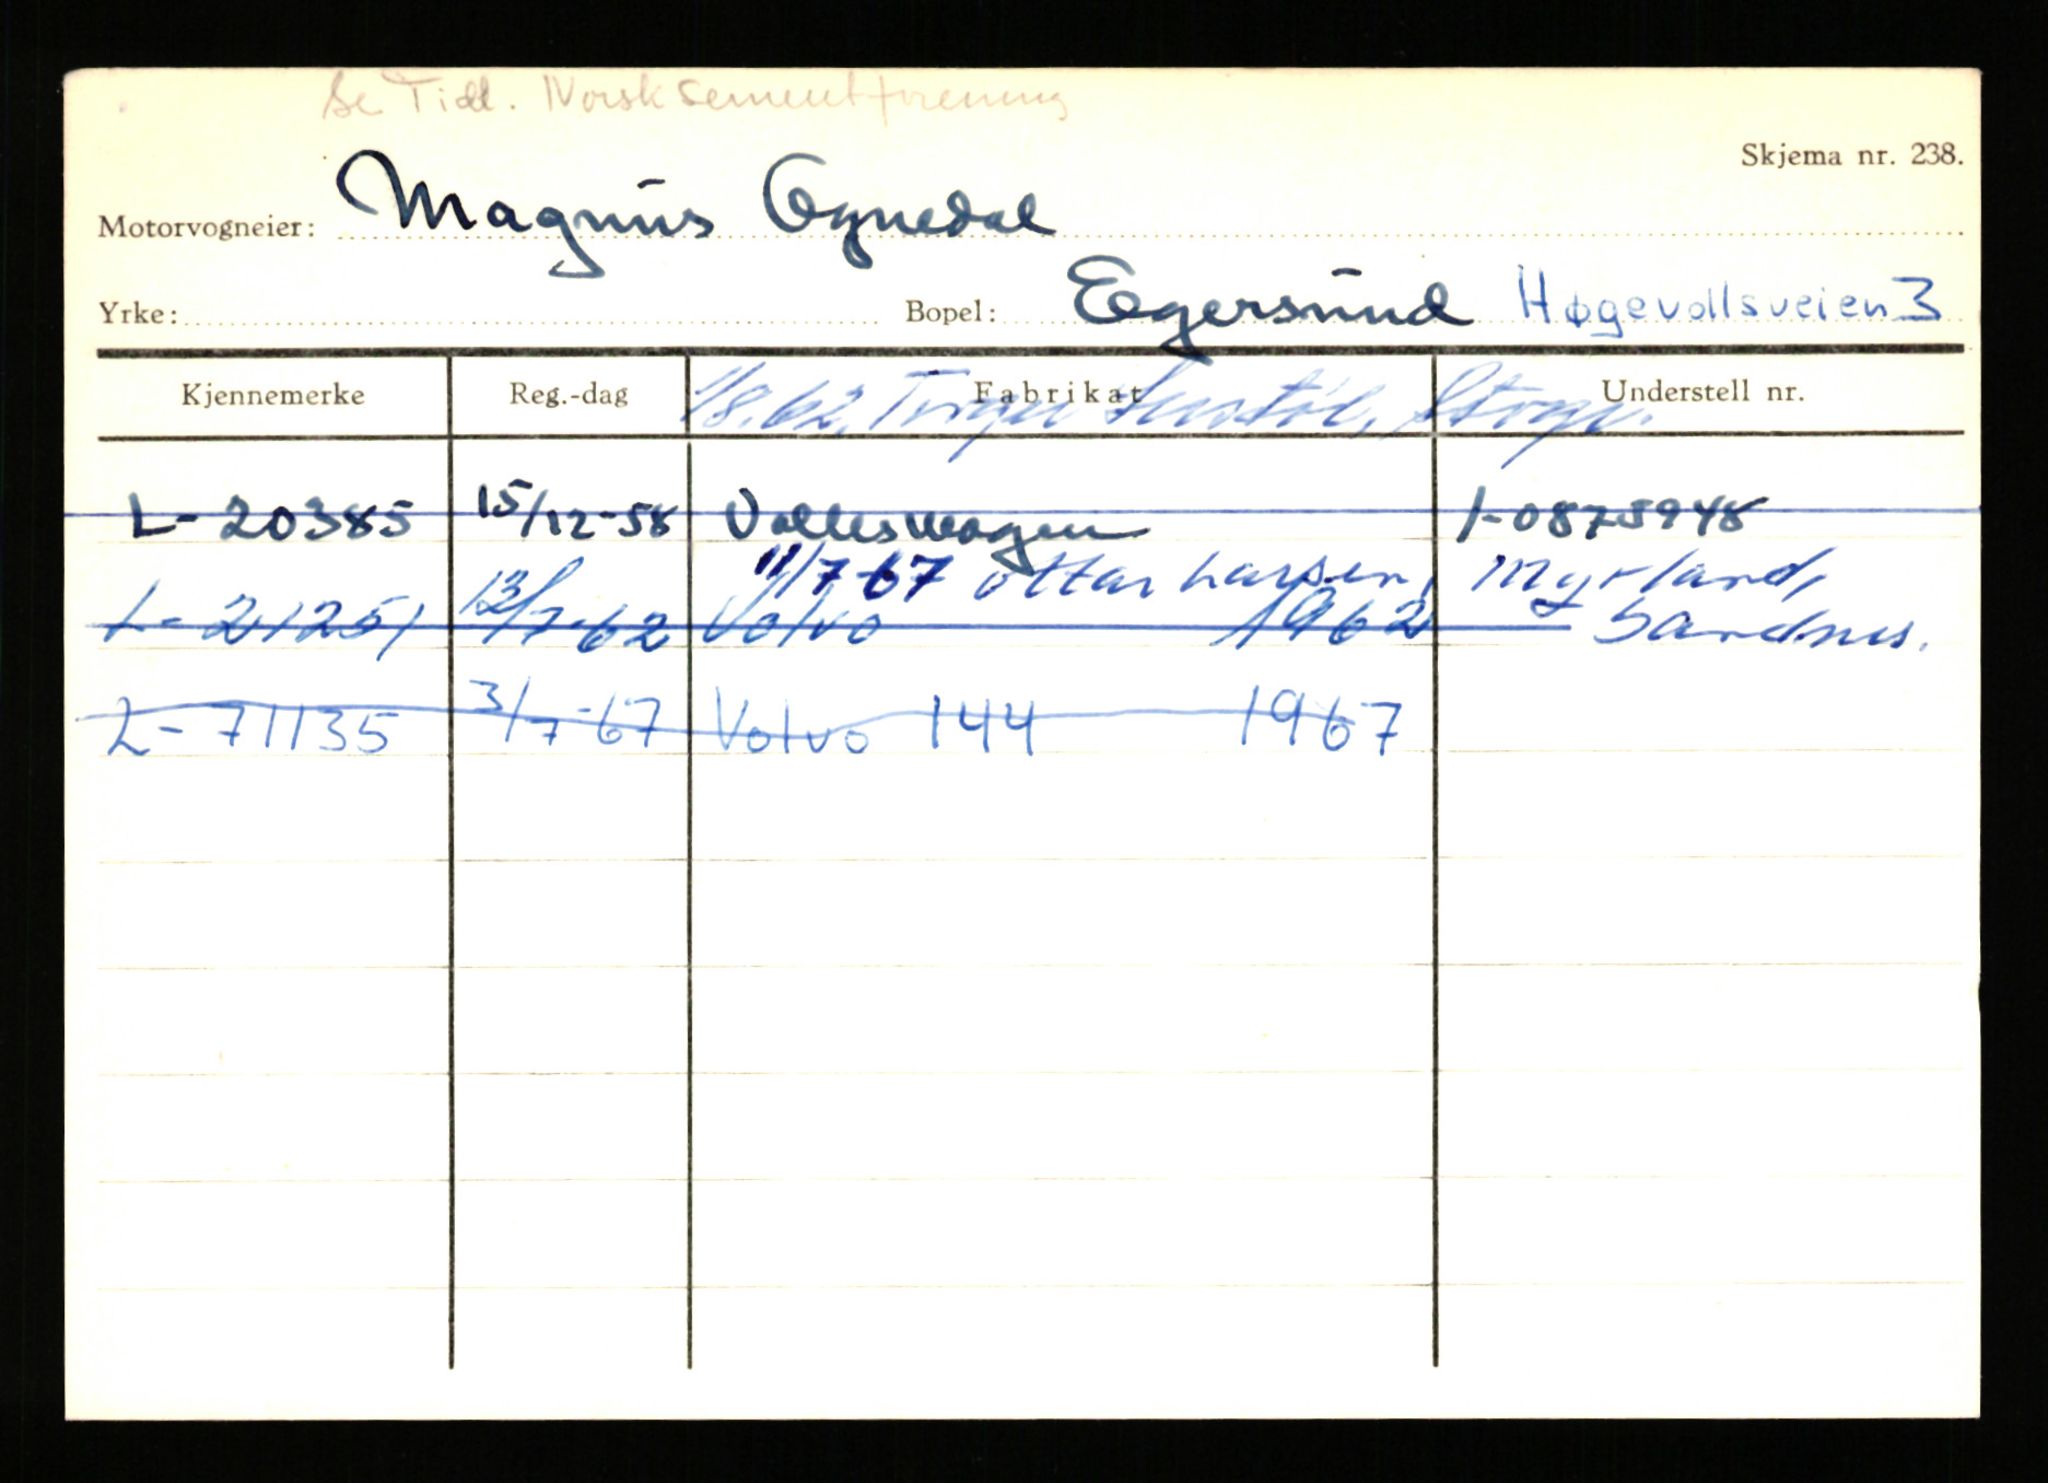 Se Tidl. Norsk Sementforening
Skjema nr. 238.
Motorvogneier: Magnus Ognedal
Yrke: Bopel: Egersund Høgevollsveien 3
Kjennemerke Reg.-dag Fabrikat Understell nr.
1/8.62.
L-20385 15/12-58 Volkswagen 1-0875948
11/7-67 Ottar Larsen, Myrland,
L-21251 13/7-62 Volvo 1962 Sandnes.
L-71135 3/7-67 Volvo 144 1967